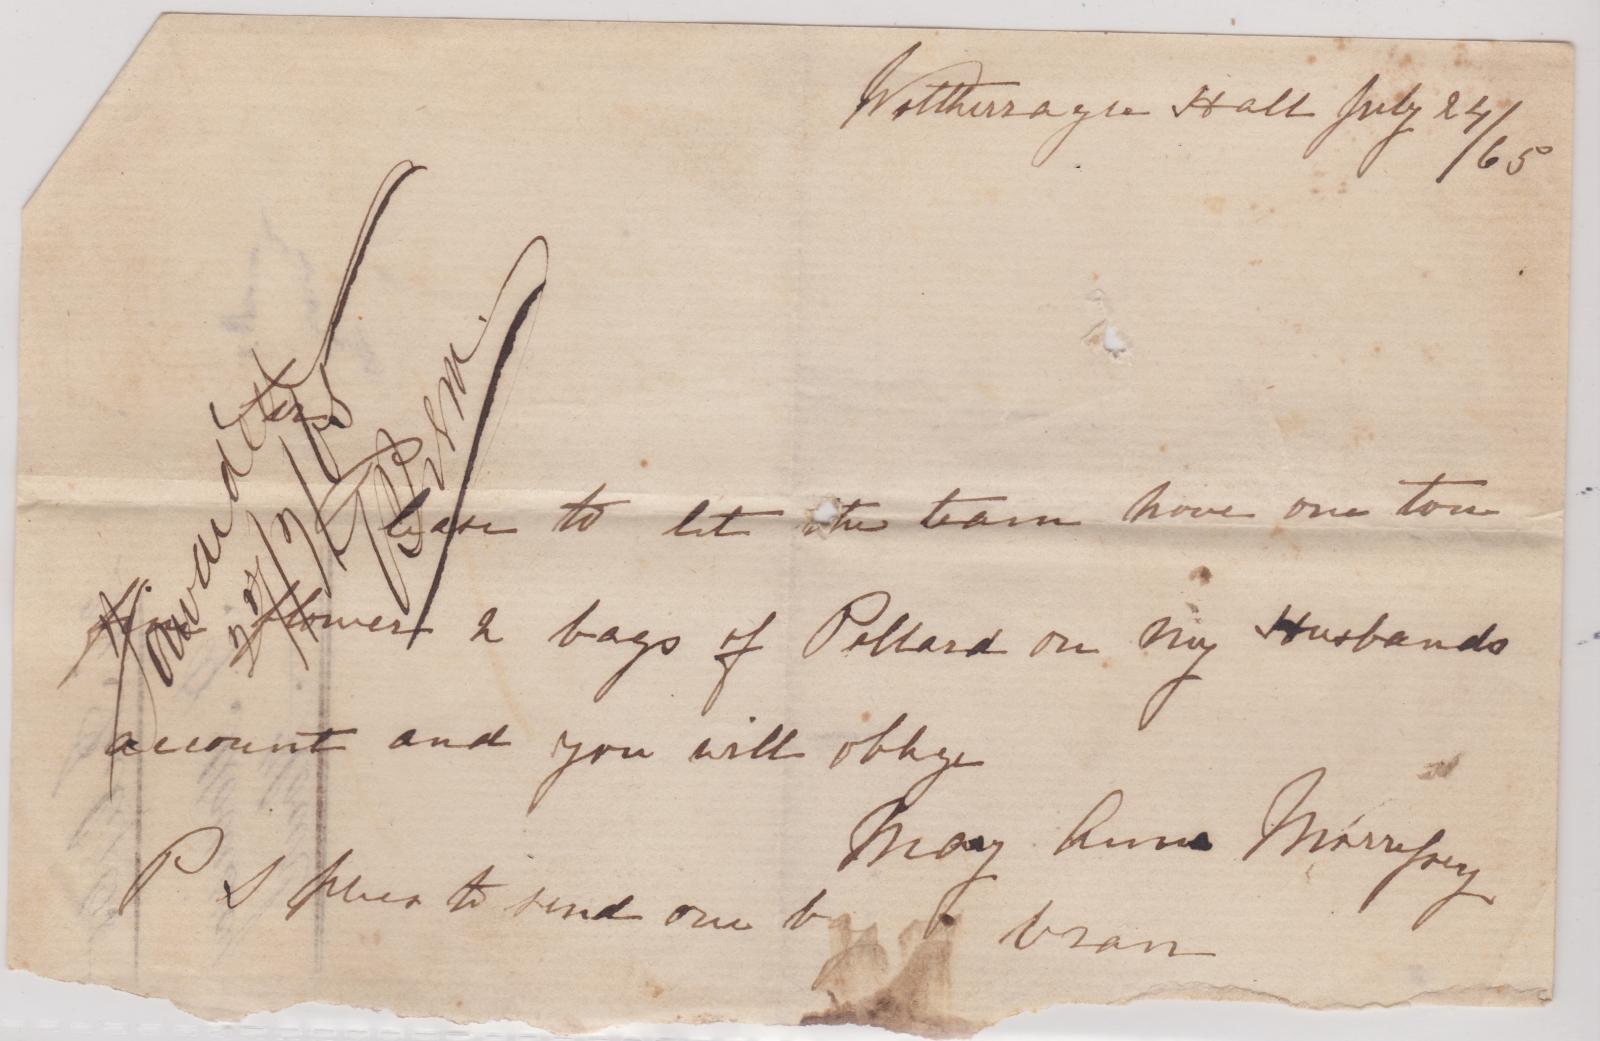 Hall July 24/65
Please to let the team have one ton
fine flower 2 bags of Pollard on my Husbands
account and you will oblige
Mary Anne Morrissey
P S pleas to send one bag bran
Forwarded
27/7/65